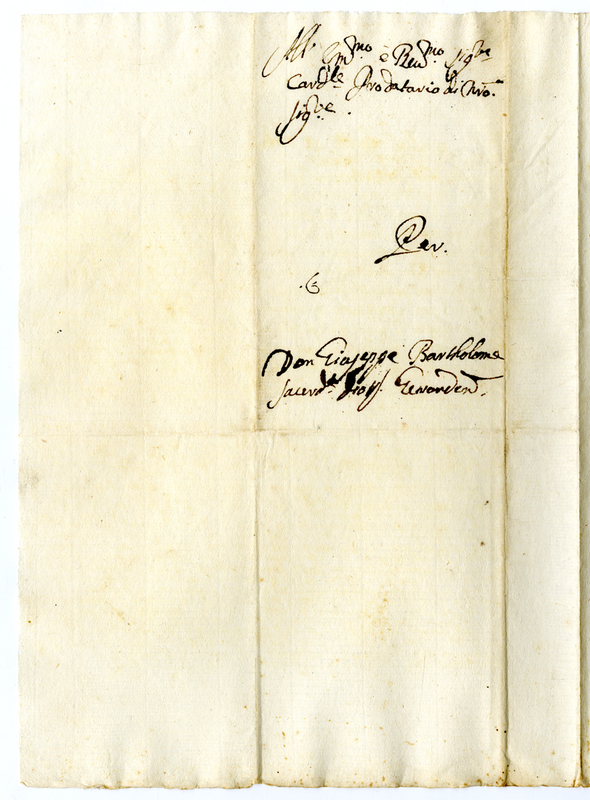 All' Em:mo e Reu:mo Sig:re
Card:le Prodatario di Nro.
Sig:re.
Per.
Don Giuseppe Bartholome
sacerd:te